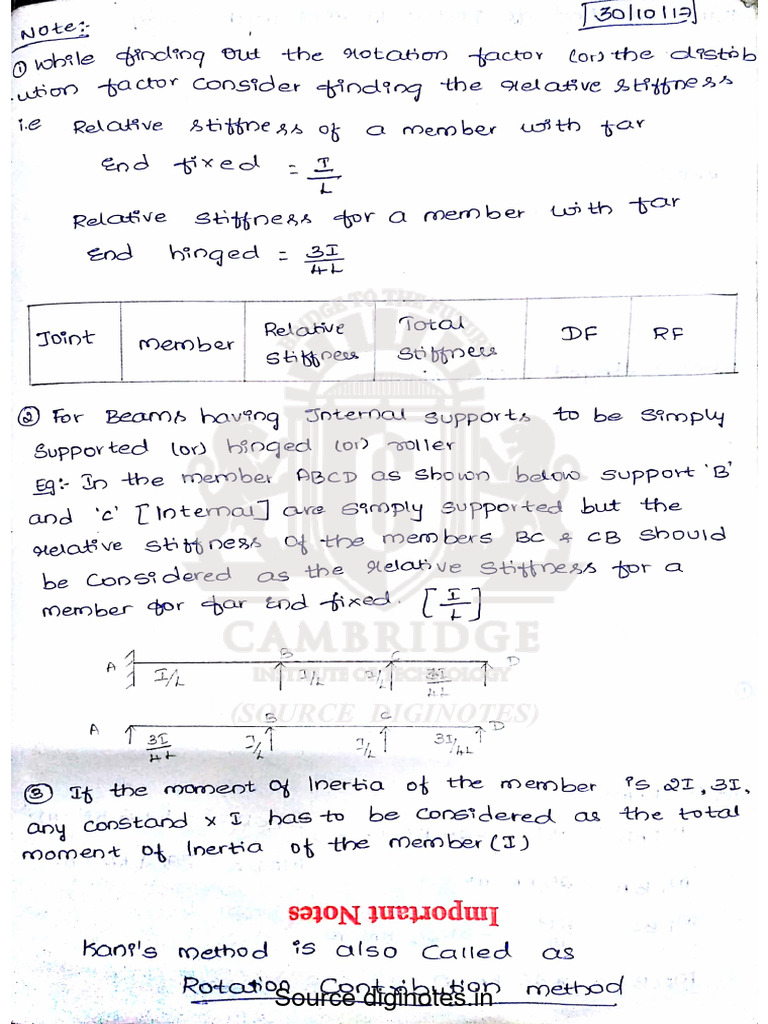 30/10/17
Note:-
① While finding out the rotation factor (or) the distrib
ution factor consider finding the relative stiffness
i.e Relative stiffness of a member with far
end fixed = I/L
Relative stiffness for a member with far
end hinged = 3I/4L
Joint member Relative stiffness Total stiffness DF RF
② For Beams having Internal supports to be simply
supported (or) hinged (or) roller
Eg:- In the member ABCD as shown below support 'B'
and 'c' [Internal] are simply supported but the
relative stiffness of the members BC & CB should
be considered as the relative stiffness for a
member for far end fixed. [I/L]
BRIDGE TO THE FUTURE
CAMBRIDGE
INSTITUTE OF TECHNOLOGY
(SOURCE DIGINOTES)
A B C D
I/L I/L I/L 3I/4L
A B C D
3I/4L I/L I/L 3I/4L
③ If the moment of Inertia of the member is 2I, 3I,
any constand x I has to be considered as the total
moment of Inertia of the member (I)
Important Notes
Kani's method is also called as
Rotation Contribution method
Source diginotes.in